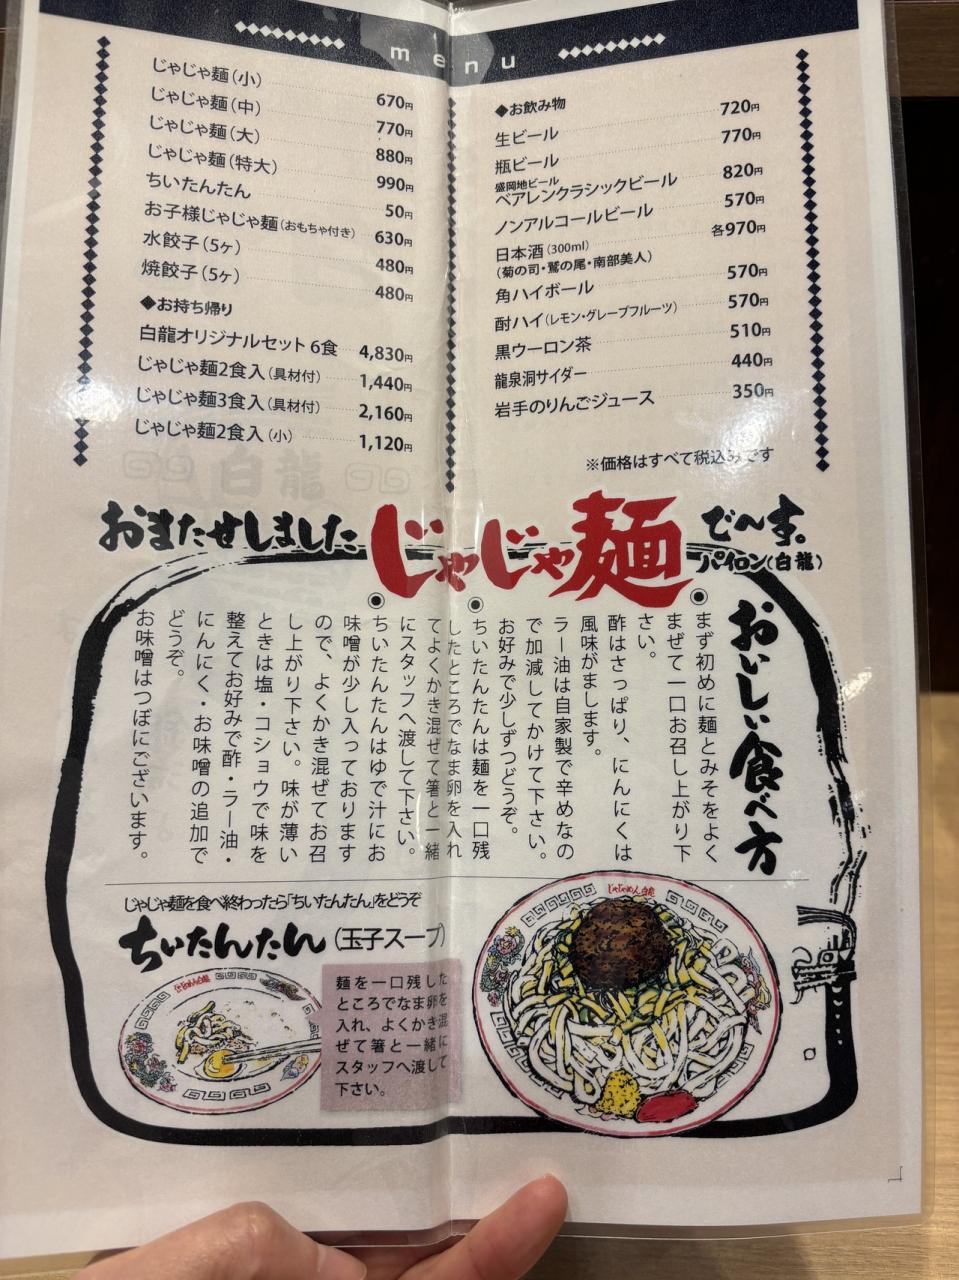 menu
じゃじゃ麺(小) 670円
じゃじゃ麺(中) 770円
じゃじゃ麺(大) 880円
じゃじゃ麺(特大) 990円
ちいたんたん 50円
お子様じゃじゃ麺(おもちゃ付き) 630円
水餃子(5ヶ) 480円
焼餃子(5ヶ) 480円
◆お持ち帰り
白龍オリジナルセット 6食 4,830円
じゃじゃ麺2食入(具材付) 1,440円
じゃじゃ麺3食入(具材付) 2,160円
じゃじゃ麺2食入(小) 1,120円
◆お飲み物
生ビール 720円
瓶ビール 770円
盛岡地ビール
ベアレンクラシックビール 820円
ノンアルコールビール 570円
日本酒(300ml) 各970円
(菊の司・鷲の尾・南部美人)
角ハイボール 570円
酎ハイ(レモン・グレープフルーツ) 570円
黒ウーロン茶 510円
龍泉洞サイダー 440円
岩手のりんごジュース 350円
※価格はすべて税込みです
おまたせしました じゃじゃ麺 で〜す。
パイロン(白龍)
おいしい食べ方
まず初めに麺とみそをよく
まぜて一口お召し上がり下
さい。
酢はさっぱり、にんにくは
風味がまします。
ラー油は自家製で辛めなの
で加減してかけて下さい。
お好みで少しずつどうぞ。
ちいたんたんは麺を一口残
したところでなま卵を入れ
てよくかき混ぜて箸と一緒
にスタッフへ渡して下さい。
ちいたんたんはゆで汁にお
味噌が少し入っております
ので、よくかき混ぜてお召
し上がり下さい。味が薄い
ときは塩・コショウで味を
整えてお好みで酢・ラー油・
にんにく・お味噌の追加で
どうぞ。
お味噌はつぼにございます。
じゃじゃ麺を食べ終わったら「ちいたんたん」をどうぞ
ちいたんたん(玉子スープ)
麺を一口残した
ところでなま卵を
入れ、よくかき混
ぜて箸と一緒に
スタッフへ渡して
下さい。
じゃじゃめん白龍
じゃじゃめん白龍